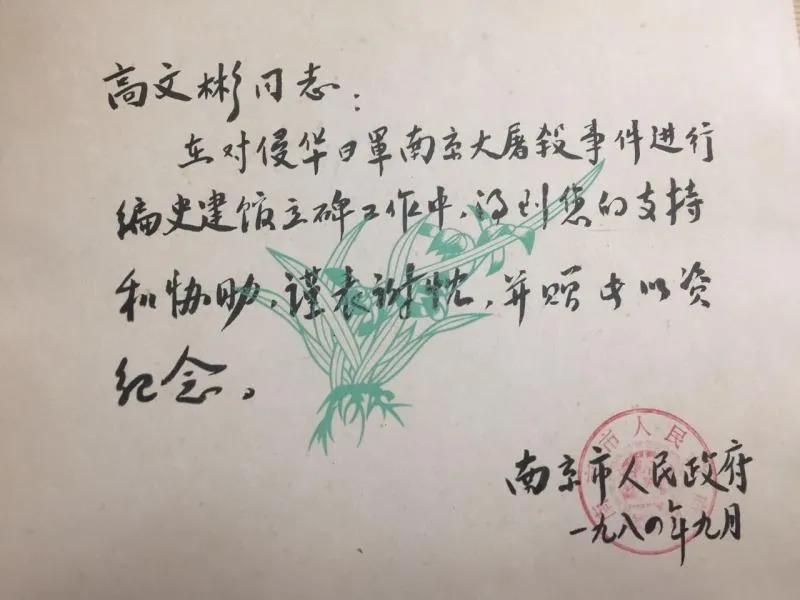 高文彬同志：
在对侵华日军南京大屠殺事件进行
编史建馆立碑工作中，得到您的支持
和协助，谨表谢忱，并赠此以资
纪念。
市人民
南京市人民政府
一九八四年九月